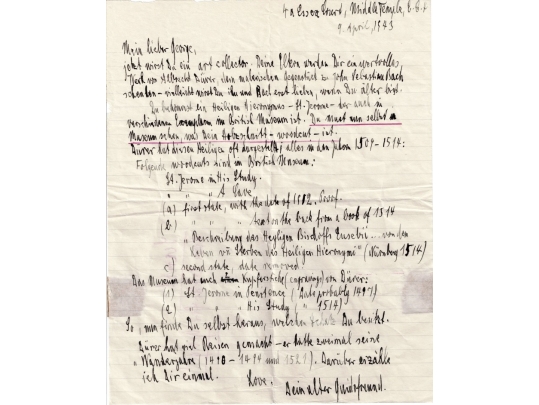 4a Essex Court, Middle Temple, E.C.4
9. April, 1943
Mein lieber George,
jetzt wirst Du ein art collector. Deine Eltern werden Dir ein wertvolles
Werk von Albrecht Dürer, dem malerischen Gegenstück zu John Sebastian Bach
schenken – vielleicht wirst Du ihn und Bach erst lieben, wenn Du älter bist.
Du bekommst ein Heiligen Hieronymus – St. Jerome – der auch in
verschiedenen Exemplaren im British Museum ist. Du musst nun selbst
Museum sehen, was Dein Holzschnitt – woodcut – ist.
Dürer hat diesen Heiligen oft dargestellt, alles in den Jahren 1509 - 1514:
Folgende woodcuts sind im British Museum:
St. Jerome in His Study.
" " A Cave
(a) first state, with the date of 1512. Proof.
(b) " " text on the back from a book of 1514
"Beschreibung des Heyligen Bischoffs Eusebii... von den
Leben und Sterben des Heiligen Hieronymi" (Nürnberg 1514)
c) second state, date removed.
Das Museum hat auch Kupferstiche (engravings) von Dürer:
(1) St. Jerome in Penitence (date probably 1497)
(2) " " His Study ( " 1514)
So, nun finde Du selbst heraus, welchen Du besitzt.
Dürer hat viel Reisen gemacht – er hatte zweimal seine
"Wanderjahre (1490 – 1494 und 1521). Darüber erzähle
ich Dir einmal.
Love.
Dein alter